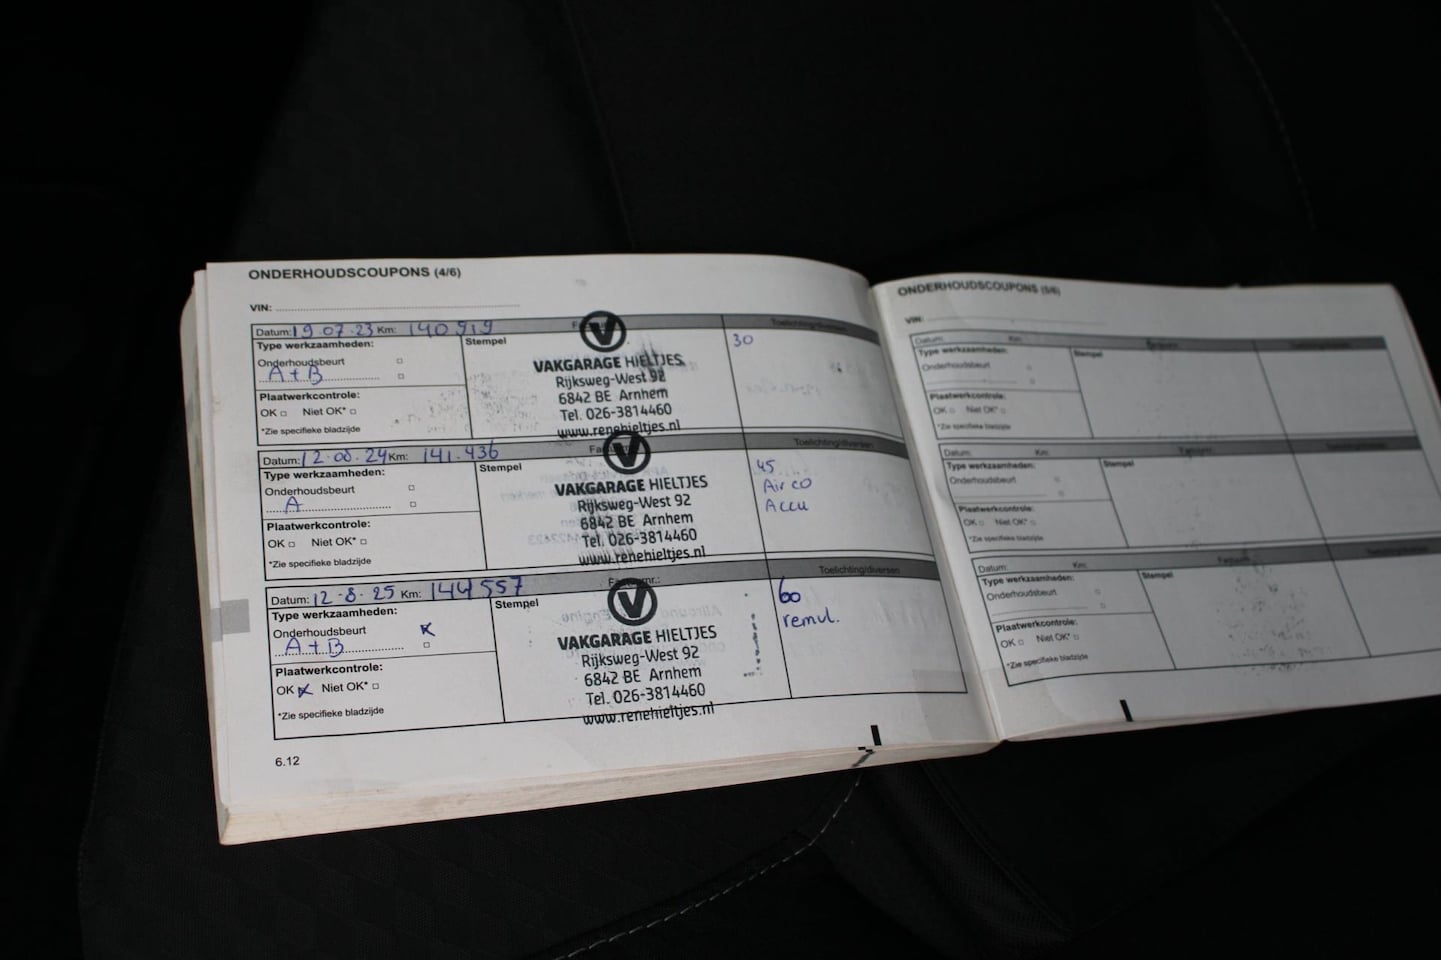 ONDERHOUDSCOUPONS (4/6)
VIN:
Datum: 19.07.23 Km: 140919
Toelichting/diversen
Type werkzaamheden:
Stempel
Onderhoudsbeurt
A+B
Plaatwerkcontrole:
OK Niet OK*
*Zie specifieke bladzijde
VAKGARAGE HIELTJES
Rijksweg-West 92
6842 BE Arnhem
Tel. 026-3814460
www.renehieltjes.nl
30
Datum: 12.08.24 Km: 141.436
Toelichting/diversen
Type werkzaamheden:
Stempel
Onderhoudsbeurt
A
Plaatwerkcontrole:
OK Niet OK*
*Zie specifieke bladzijde
VAKGARAGE HIELTJES
Rijksweg-West 92
6842 BE Arnhem
Tel. 026-3814460
www.renehieltjes.nl
45
Airco
Accu
Datum: 12-8-25 Km: 144557
Toelichting/diversen
Type werkzaamheden:
Stempel
Onderhoudsbeurt
A+B
Plaatwerkcontrole:
OK Niet OK*
*Zie specifieke bladzijde
VAKGARAGE HIELTJES
Rijksweg-West 92
6842 BE Arnhem
Tel. 026-3814460
www.renehieltjes.nl
60
remul.
6.12
ONDERHOUDSCOUPONS (5/6)
VIN:
Datum: Km:
Type werkzaamheden:
Stempel
Onderhoudsbeurt
Plaatwerkcontrole:
OK Niet OK*
*Zie specifieke bladzijde
Datum: Km:
Type werkzaamheden:
Stempel
Onderhoudsbeurt
Plaatwerkcontrole:
OK Niet OK*
*Zie specifieke bladzijde
Datum: Km:
Type werkzaamheden:
Stempel
Onderhoudsbeurt
Plaatwerkcontrole:
OK Niet OK*
*Zie specifieke bladzijde